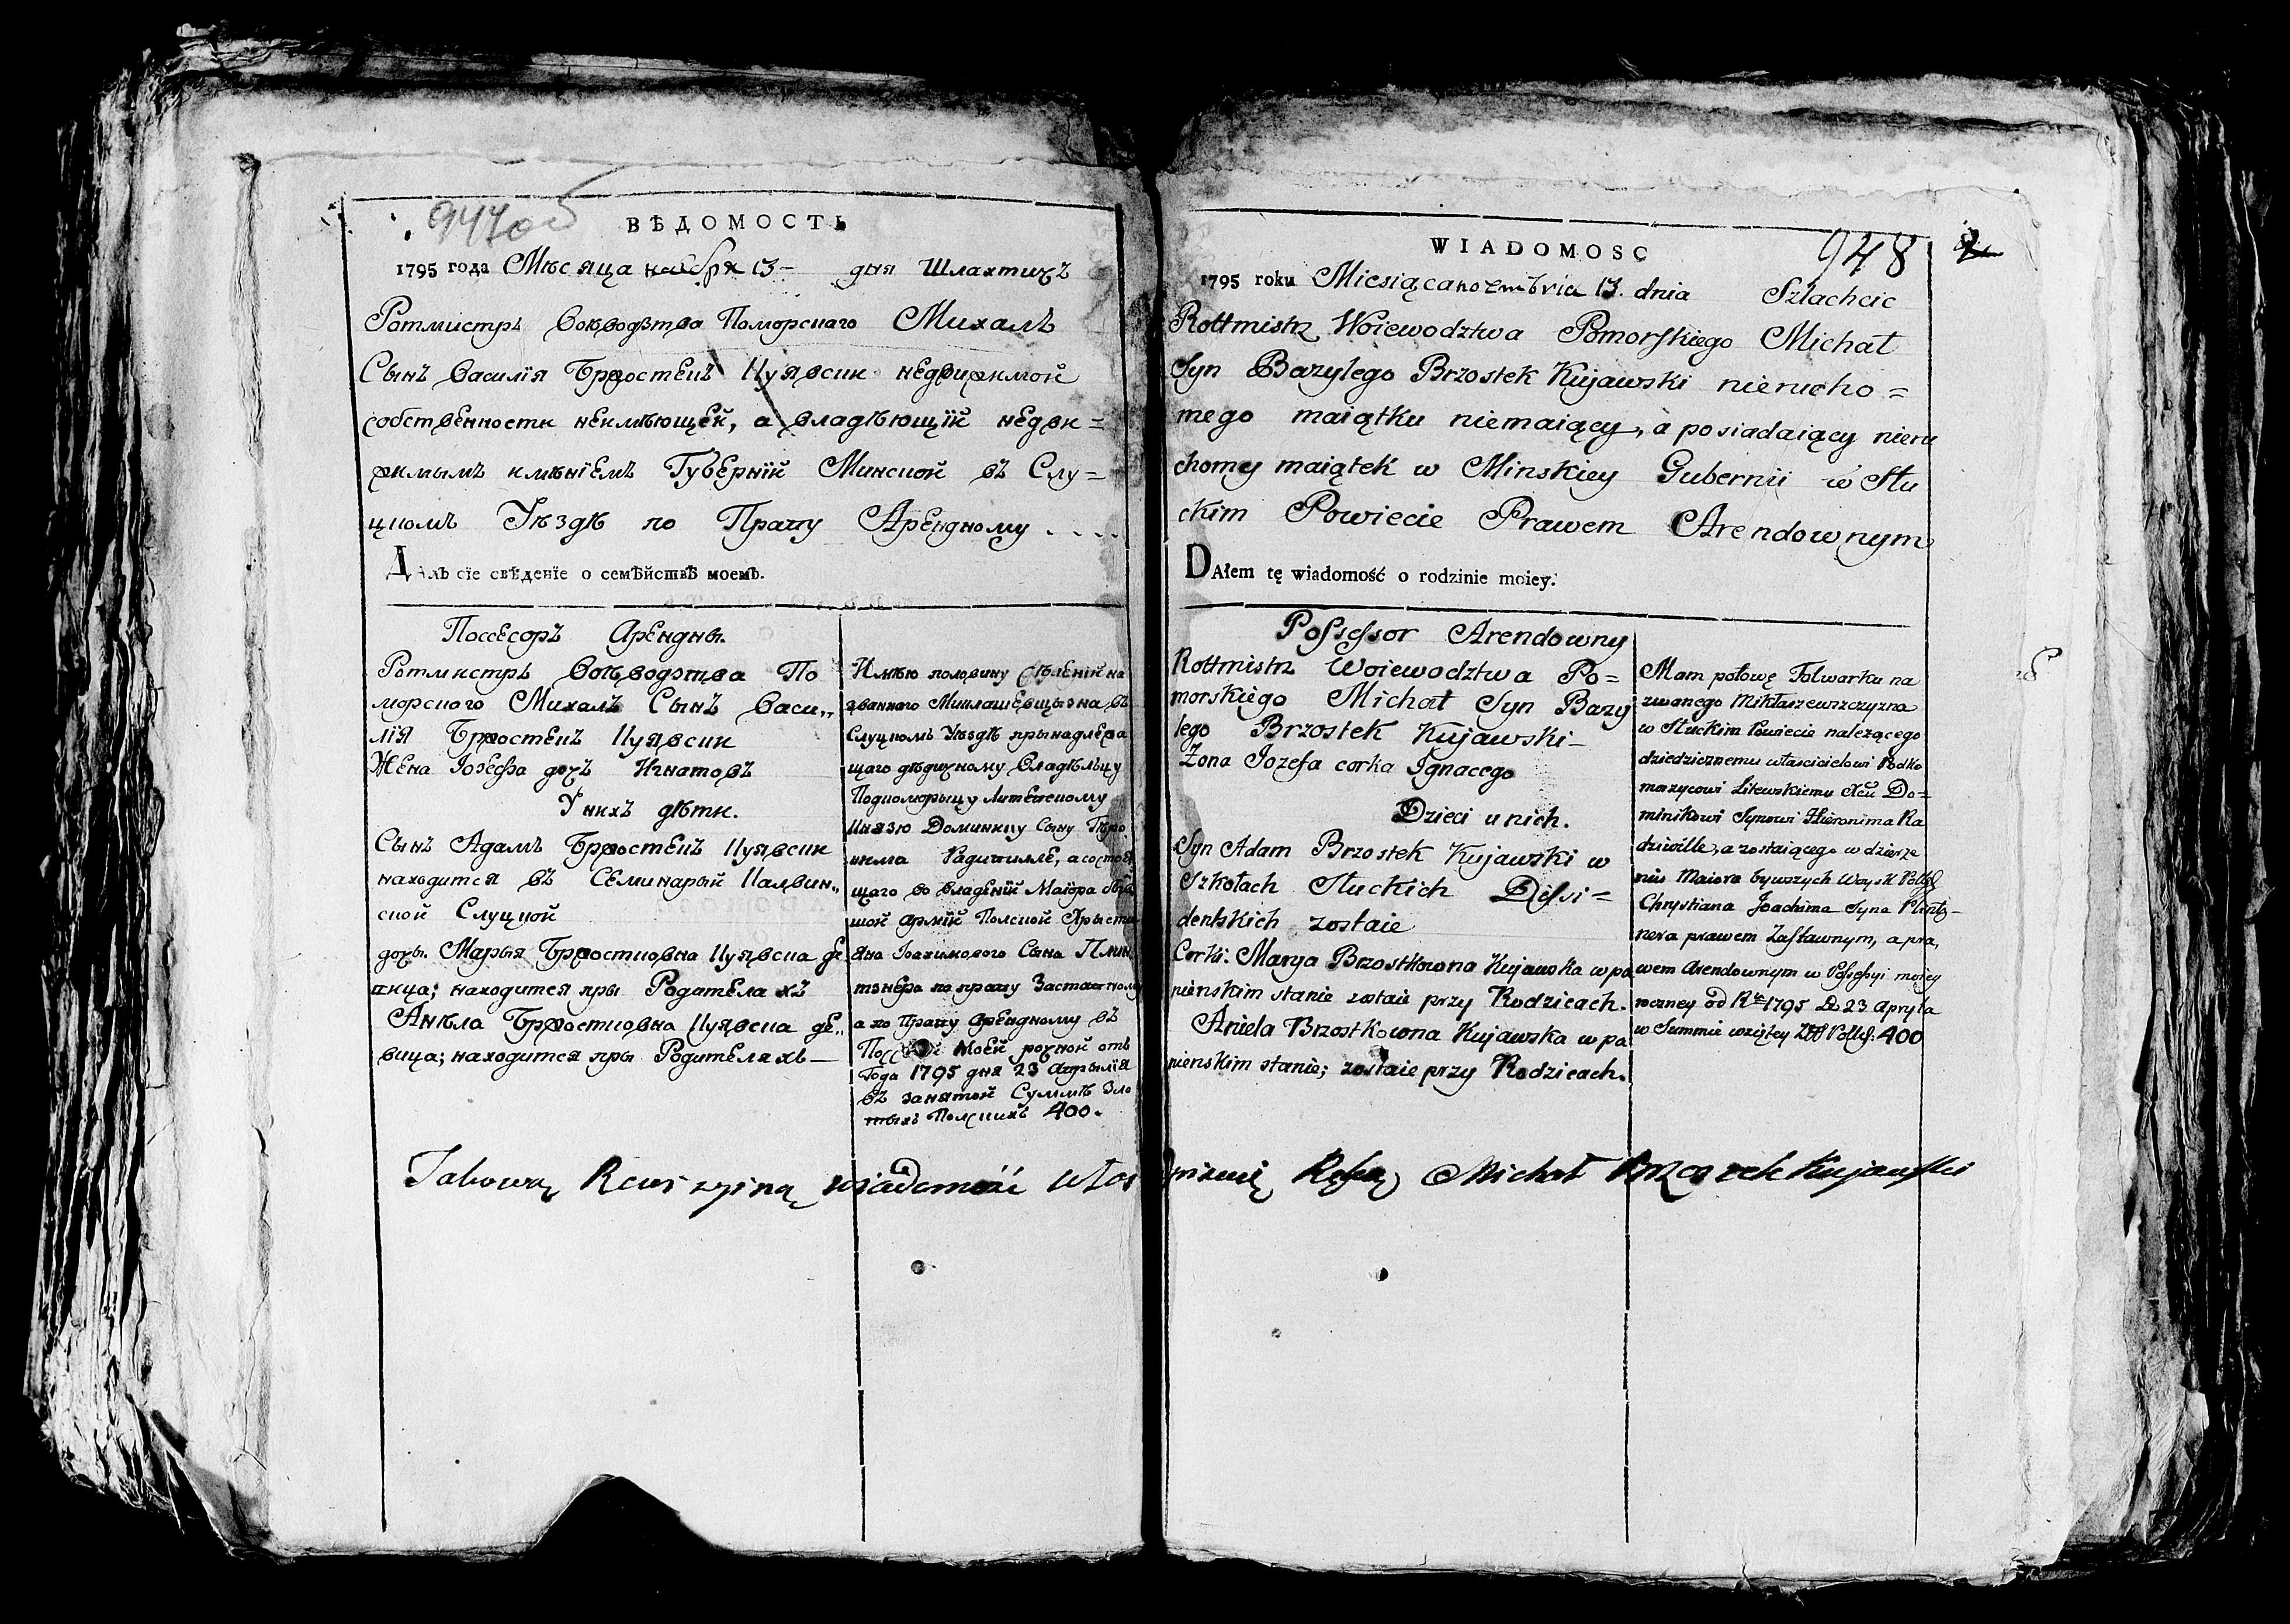 947об
ВѢДОМОСТЬ
1795 года Мѣсяца ноября 13 – дня Шлахтичъ
Ротмистръ Воѣводзтва Поморскаго Михалъ
Сынъ Василія Бржостекъ Куявски недвижимой
собственности неимѣющей, а владѣющій недви=
жимымъ имѣніемъ Губерніи Минской въ Слу=
цкомъ Уѣздѣ по Праву Арендному . . . .
Далъ сіе свѣденіе о семѣйствѣ моемъ.
Поссесоръ Арендны.
Ротмистръ Воѣводзтва По
морского Михалъ Сынъ Васи„
лія Бржостекъ Куявски
Жена Іозефа дочъ Игнатовъ
У нихъ дѣти.
Сынъ Адамъ Бржостекъ Куявски
находится въ Семинарый Калвин„
ской Слуцкой
дочы. Марья Бржостковна Куявска де
вица; находится пры Родителахъ
Анѣла Бржостковна Куявска де„
вица; находится пры Родителяхъ —
Имѣю половину Сѣленій на
званного Миклашевщызна въ
Слуцкомъ Уѣздѣ прынадлежа
щаго дѣдичному Владѣльцу
Подкоморыцу Литевскому
Князю Доминику Сыну Гѣро
нима Радзивилле, а состоя
щаго во владеній Маіора быв
шой Армій Полской Хрысти
яна Іоахимового Сына Плин
тзнера по праву Заставному
а по Праву Арендному въ
Поссесій Моей рочной отъ
Года 1795 дня 23 Апрылія
въ занятой Суммѣ Зло
тыхъ Полскихъ 400.
948
WIADOMOSC
1795 roku Miesiąca nowembria 13. dnia Szlachcic
Rottmistrz Woiewodztwa Pomorskiego Michał
Syn Bazylego Brzostek Kujawski nierucho=
mego maiątku niemaiący, a posiadaiący nieru
chomy maiątek w Minskiey Gubernii w Słu
ckim Powiecie Prawem Arendownym
DAłem tę wiadomość o rodzinie moiey.
Possessor Arendowny
Rottmistrz Woiewodztwa Po=
morskiego Michał Syn Bazy
lego Brzostek Kujawski –
Żona Jozefa corka Ignacego
Dzieci u nich.
Syn Adam Brzostek Kujawski w
Szkołach Słuckich Dissi=
dentskich zostaie
Corki: Marya Brzostkowna Kujawska w pa
nienskim stanie zostaie przy Rodzicach.
Aniela Brzostkowna Kujawska w pa
nienskim stanie; zostaie przy Rodzicach.
Mam połowę Folwarku na
zwanego Mikłaszewszczyzna
w Słuckim Powiecie należącego
dziedzicznemu właścicielowi Podko
morzycowi Litewskiemu Xciu Do=
minikowi Synowi Hieronima Ra
dziwille, a zostaiącego w dzierże
niu Maiora bywszych Woysk Polsk
Chrystiana Joachima Syna Plintz–
nera prawem Zastawnym, a pra„
wem Arendownym w Possessyi moiey
roczney od Rku 1795 D. 23 Apryla
w Summie wziętey Złł Polsk: 400
Takową Rewizyiną wiadomość własnoręcznie
Ręką Michał Brzostek Kujawski